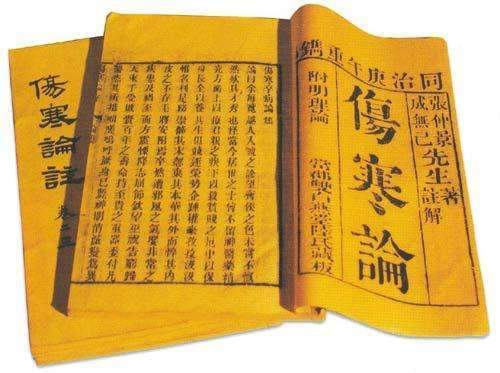 同治庚午重鐫
張仲景著
成無己先生註解
傷寒論
附明理論
藏板
傷寒卒病論集
論曰余每覽越人入虢之診望齊侯之色未嘗不慨
然歎其才秀也怪當今居世之士曾不留神醫藥精
究方術上以療君親之疾下以救貧賤之厄中以保
身長全以養其生但競逐榮勢企踵權豪孜孜汲汲
惟名利是務崇飾其末忽棄其本華其外而悴其內
皮之不存毛將安附焉卒然遭邪風之氣嬰非常之
疾患及禍至而方震慄降志屈節欽望巫祝告窮歸
天束手受敗賫百年之壽命持至貴之重器委付凡
醫恣其所措咄嗟嗚呼厥身已斃神明消滅變為異
傷寒論註